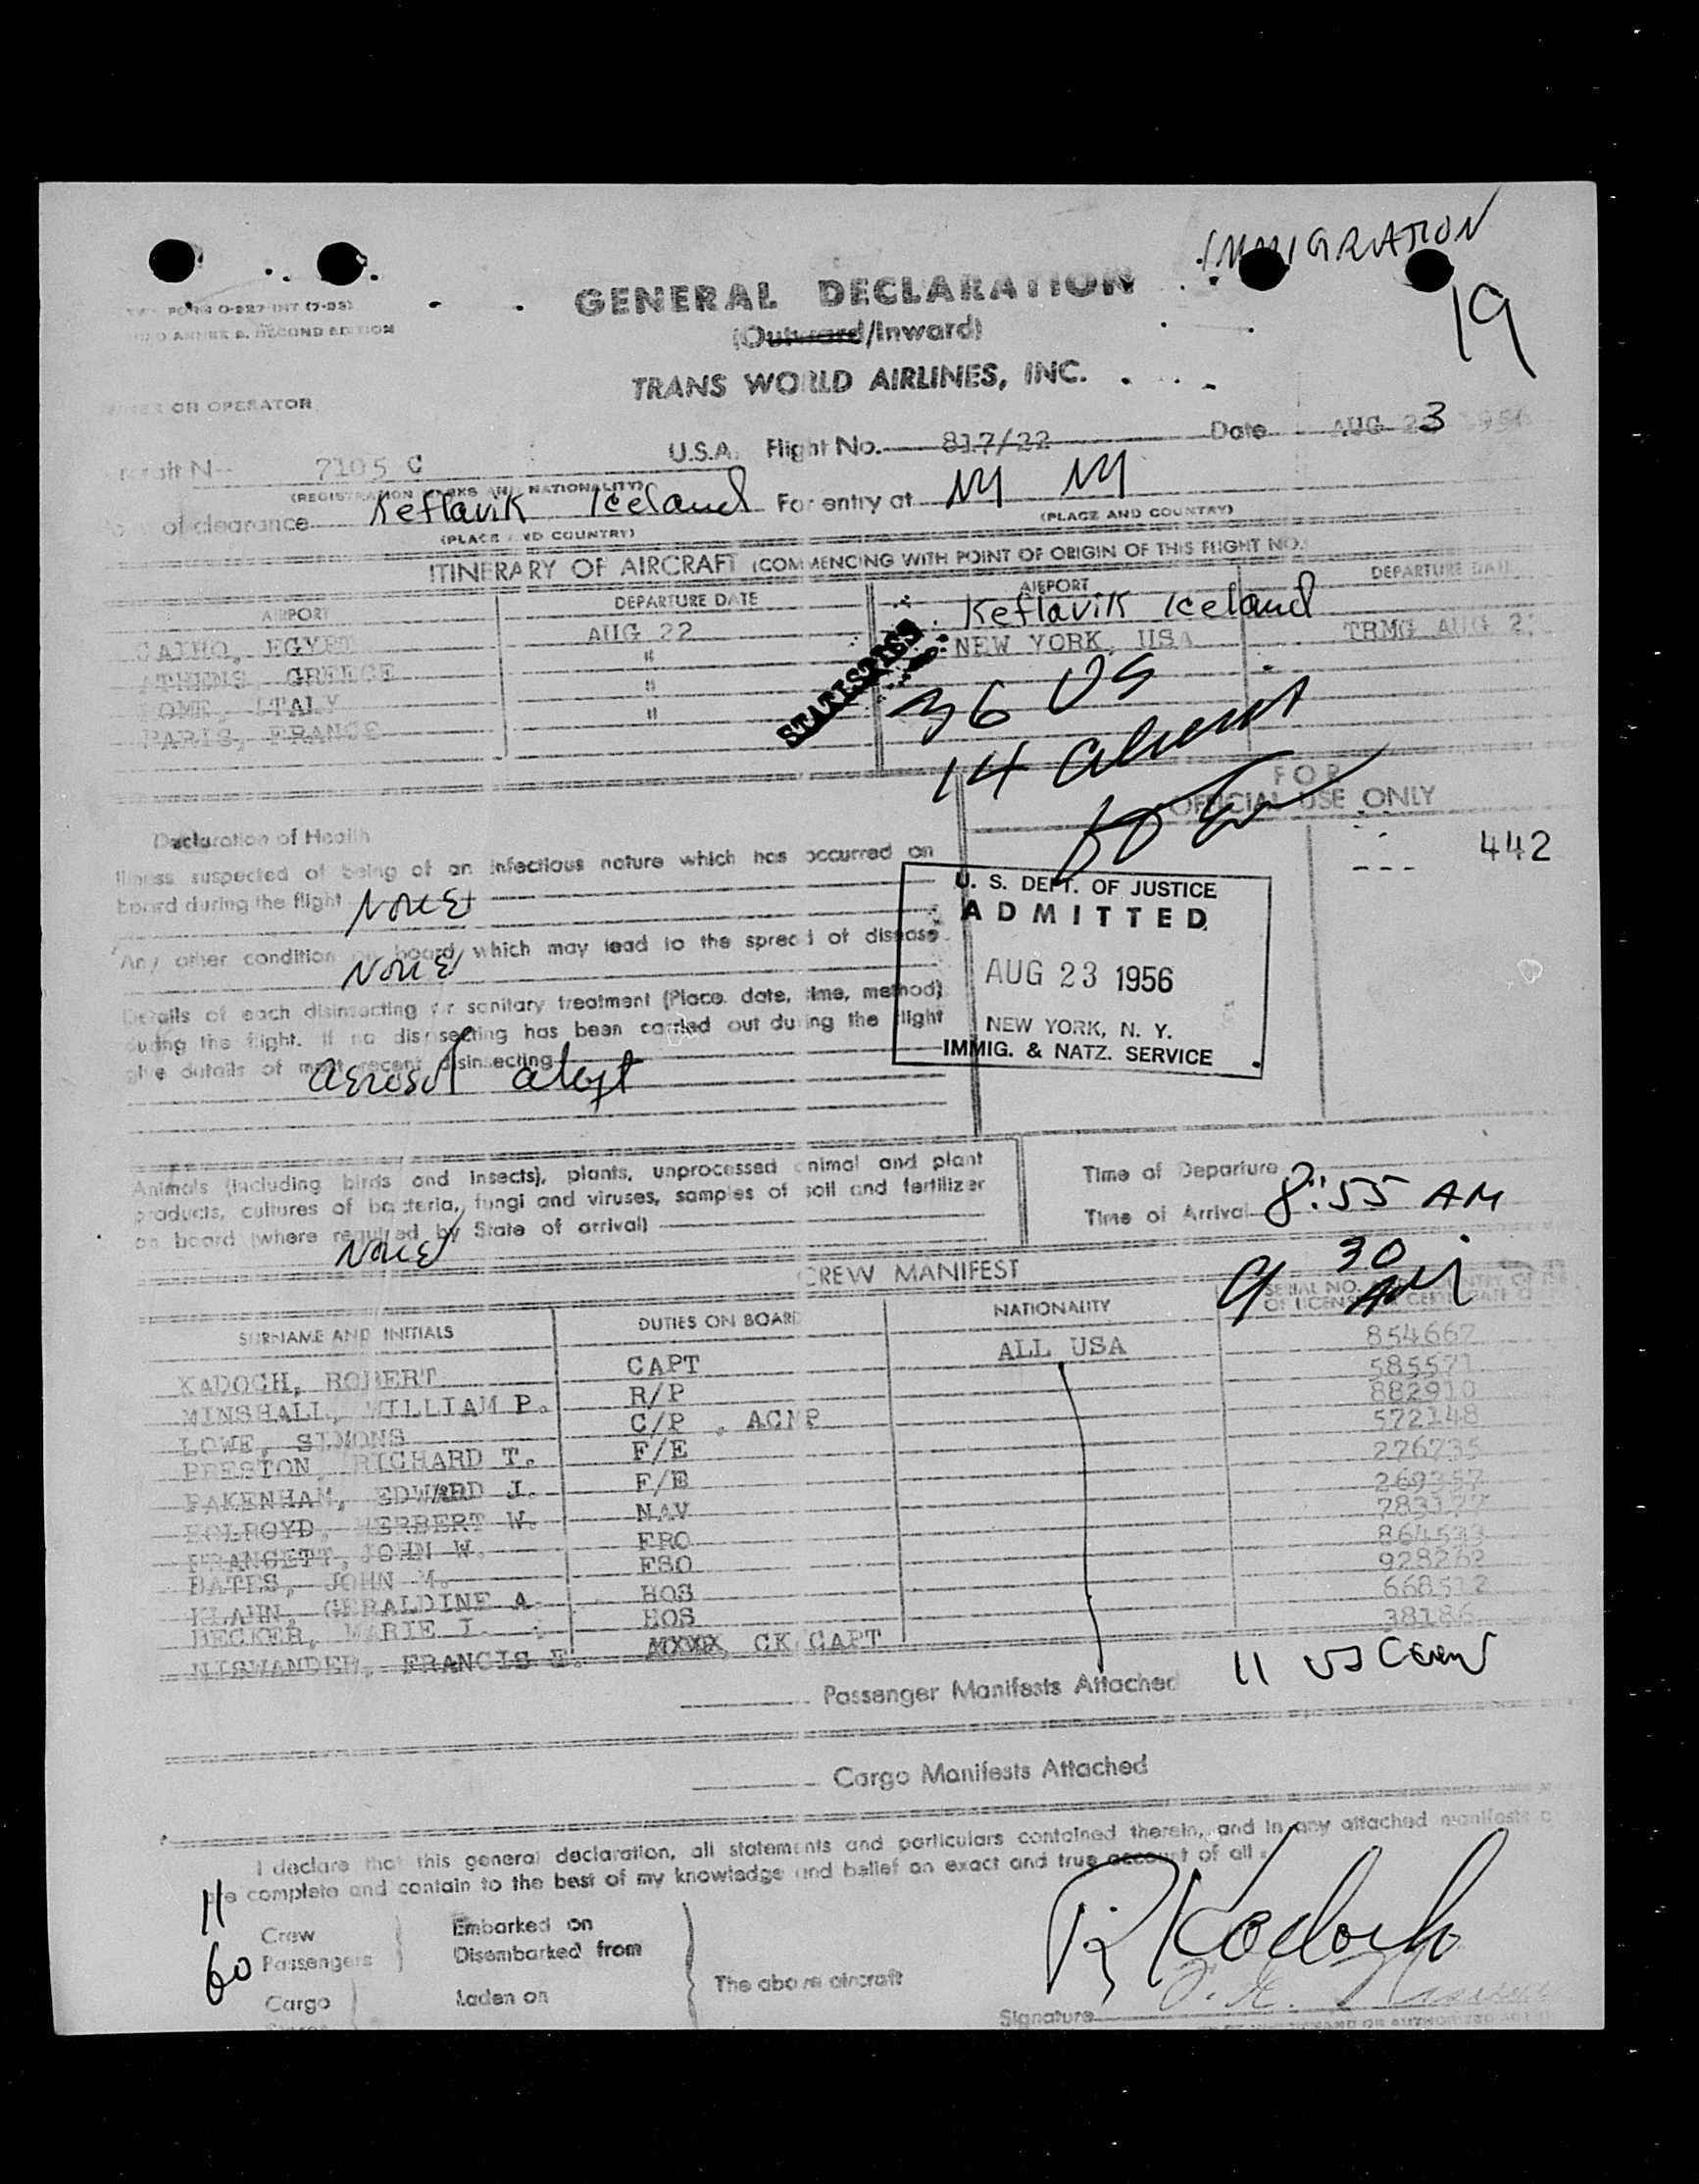 IMMIGRATION
19
FORM O-827 INT (7-53)
ANNEX 9, SECOND EDITION
GENERAL DECLARATION
(Outward/Inward)
TRANS WORLD AIRLINES, INC.
OR OPERATOR
7105 C U.S.A. Flight No. 817/22 Date AUG 23 1956
(REGISTRATION MARKS AND NATIONALITY)
of clearance Keflavik Iceland For entry at NY NY
(PLACE AND COUNTRY) (PLACE AND COUNTRY)
ITINERARY OF AIRCRAFT (COMMENCING WITH POINT OF ORIGIN OF THIS FLIGHT NO.
AIRPORT DEPARTURE DATE AIRPORT DEPARTURE DATE
CAIRO, EGYPT AUG 22 Keflavik Iceland
ATHENS, GREECE " NEW YORK, USA TRMG AUG 2
ROME, ITALY "
PARIS, FRANCE "
STATISTICS
36 US
14 aliens
FOR
OFFICIAL USE ONLY
442
Declaration of Health
Illness suspected of being of an infectious nature which has occurred on
board during the flight None
Any other condition on board which may lead to the spread of disease
None
Details of each disinsecting or sanitary treatment (Place, date, time, method)
during the flight. If no disinsecting has been carried out during the flight
give details of most recent disinsecting
aerosol
U. S. DEPT. OF JUSTICE
ADMITTED
AUG 23 1956
NEW YORK, N. Y.
IMMIG. & NATZ. SERVICE
Animals (including birds and insects), plants, unprocessed animal and plant
products, cultures of bacteria, fungi and viruses, samples of soil and fertilizer
on board (where required by State of arrival)
None
Time of Departure
Time of Arrival 8:55 AM
9 30 AM
CREW MANIFEST
SURNAME AND INITIALS DUTIES ON BOARD NATIONALITY SERIAL NO.
KADOCH, ROBERT CAPT ALL USA 854667
MINSHALL, WILLIAM P. R/P 585571
LOWE, SIMONS C/P , ACMP 882910
PRESTON, RICHARD T. F/E 572148
PAKENHAM, EDWARD J. F/E 276735
HOLROYD, HERBERT W. NAV 269357
FRANCETT, JOHN W. FRO 783177
BATES, JOHN M. FSO 864533
KLAHN, GERALDINE A. HOS 928262
BECKER, MARIE I. HOS 668512
NISWANDER, FRANCIS E. CK CAPT 38186
11 US Crew
Passenger Manifests Attached
Cargo Manifests Attached
I declare that this general declaration, all statements and particulars contained therein, and in any attached manifests
are complete and contain to the best of my knowledge and belief an exact and true account of all
11 Crew Embarked on
60 Passengers Disembarked from
The above aircraft
Cargo Laden on
R Kadoch
Signature